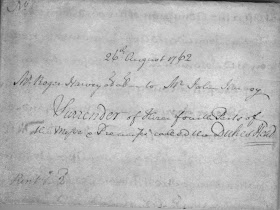 No.
26th August 1762
Mr. Roger Harvey & to Mr. John Harvey
Surrender of three fourth Parts of
a Messe. or Tenemt. called the Dukes Head